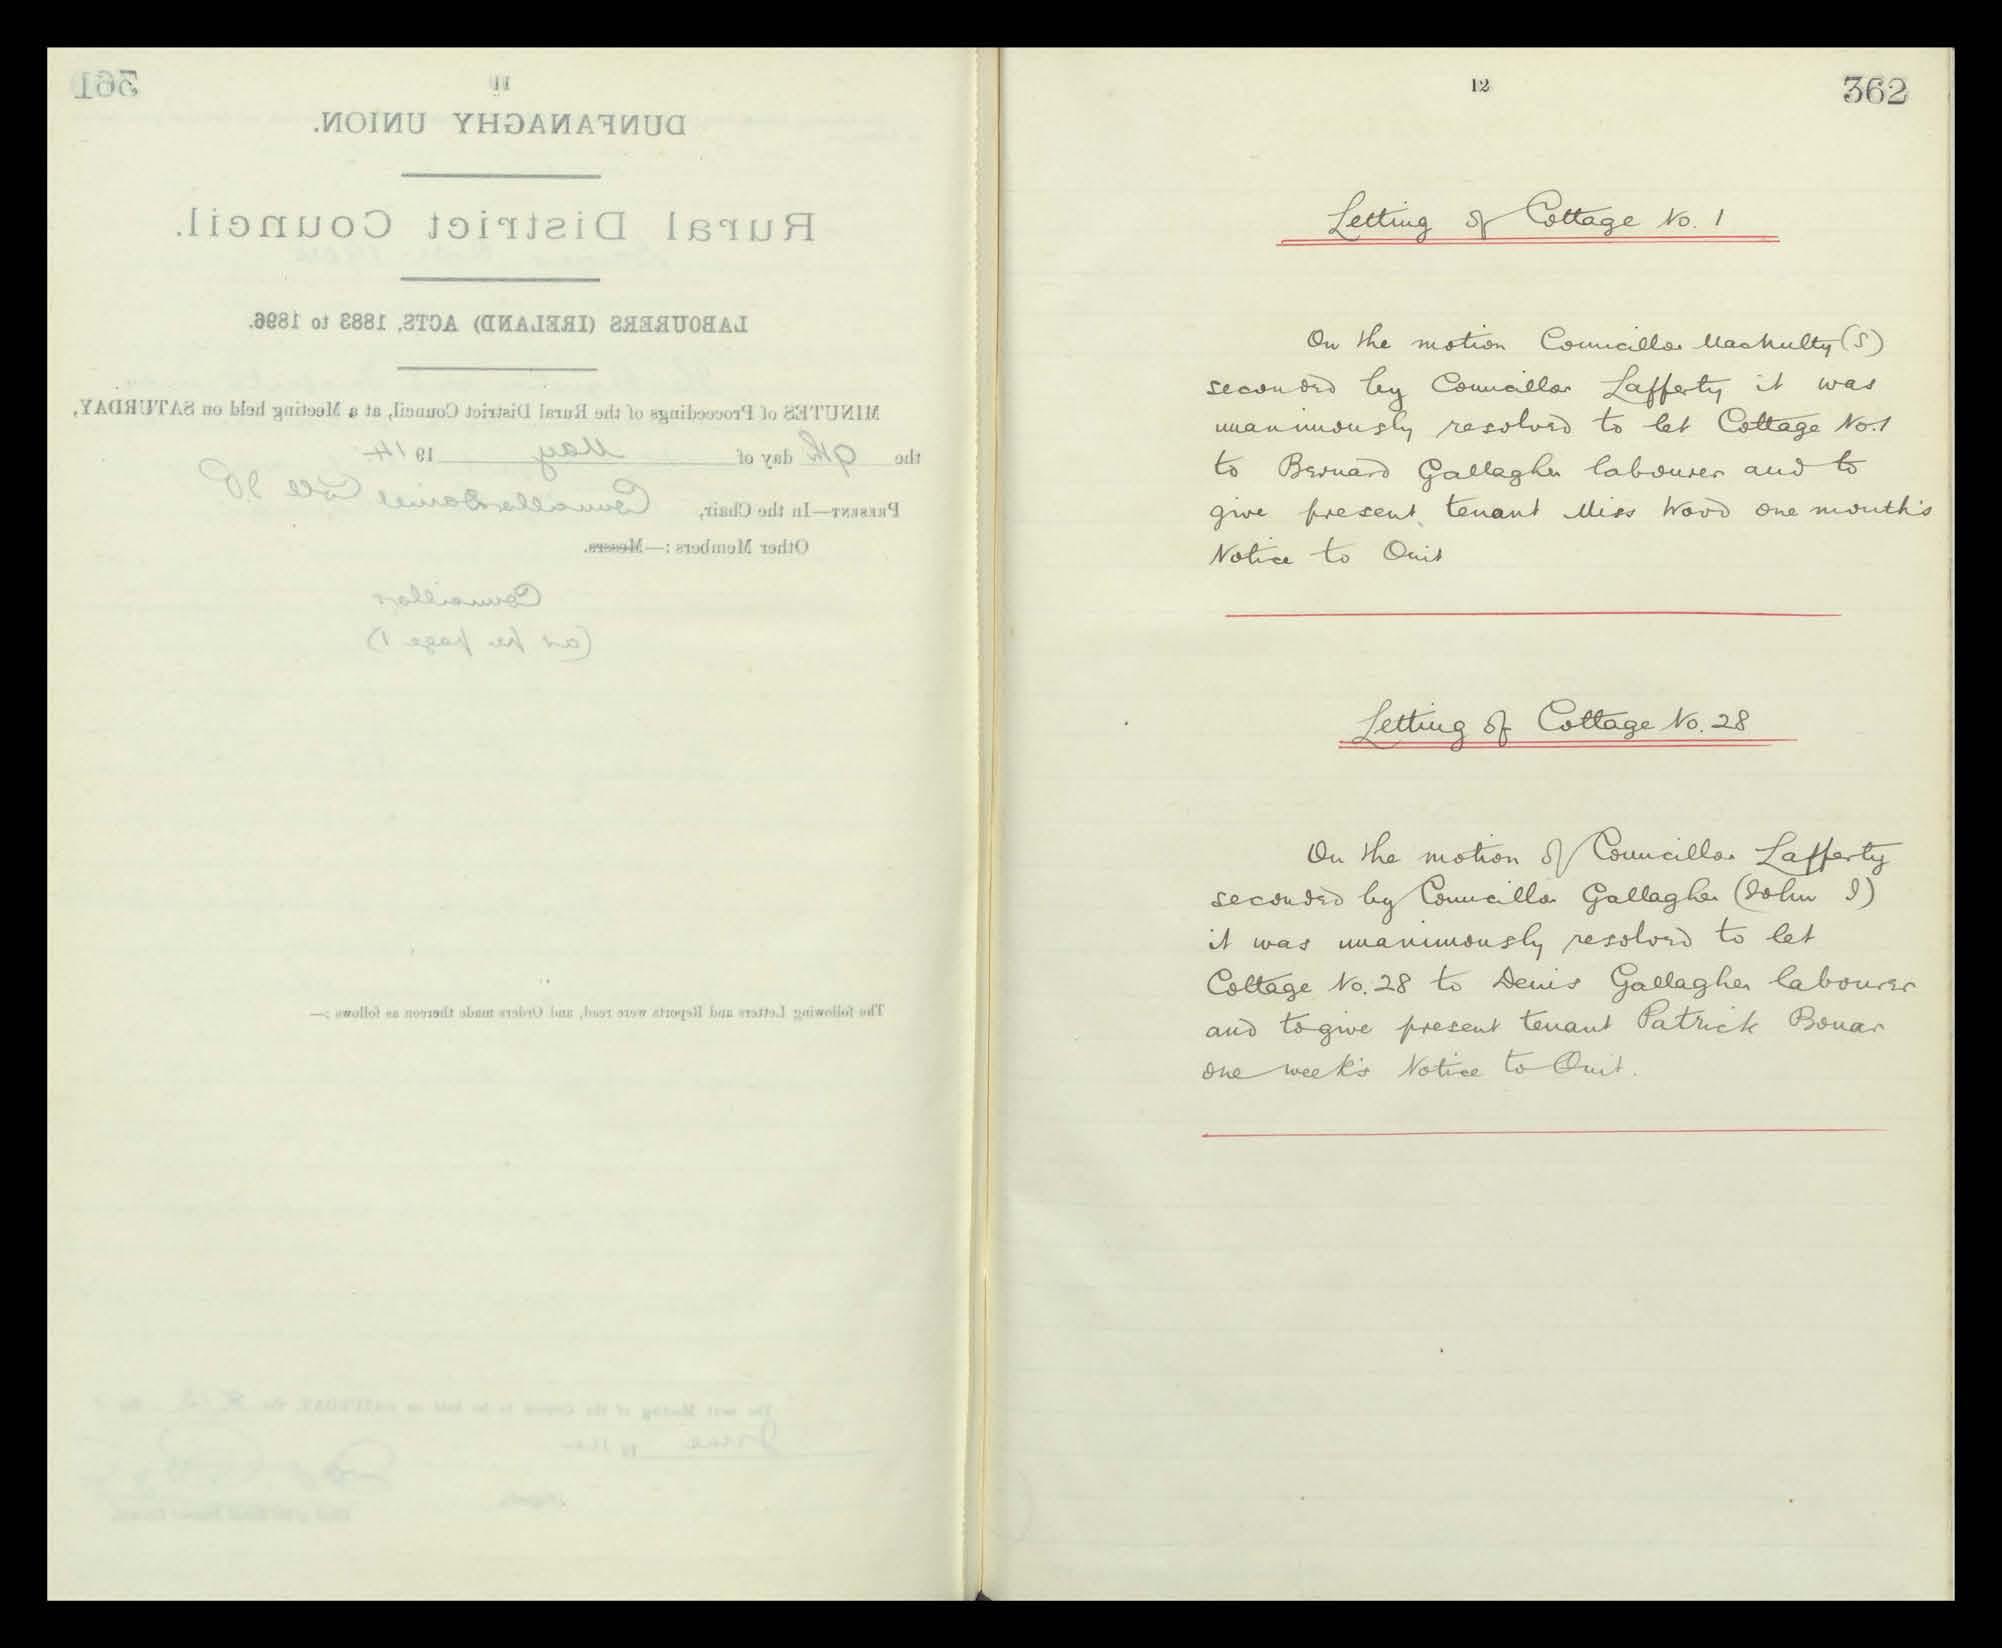 361
11
DUNFANAGHY UNION.
Rural District Council.
LABOURERS (IRELAND) ACTS, 1883 to 1896.
MINUTES of Proceedings of the Rural District Council, at a Meeting held on SATURDAY,
the 9th day of May 1914
PRESENT—In the Chair, Councillor Daniel Coll JP
Other Members:—Messrs.
Councillors
(as per page 1)
The following Letters and Reports were read, and Orders made thereon as follows:—
The next Meeting of the Council to be held on SATURDAY, the
June
12
362
Letting of Cottage No. 1
On the motion Councillor MacNulty (S)
seconded by Councillor Lafferty it was
unanimously resolved to let Cottage No.1
to Bernard Gallagher labourer and to
give present tenant Miss Wood one month's
Notice to Quit
Letting of Cottage No. 28
On the motion of Councillor Lafferty
seconded by Councillor Gallagher (John J)
it was unanimously resolved to let
Cottage No. 28 to Denis Gallagher labourer
and to give present tenant Patrick Bonar
one week's Notice to Quit.